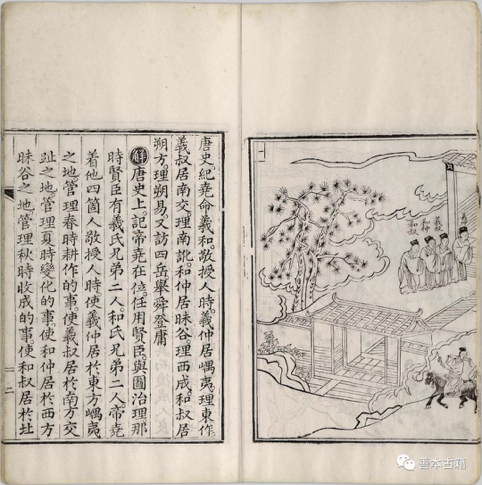 和仲
和叔
唐史紀堯命羲和敬授人時羲仲居嵎夷理東作
羲叔居南交理南訛和仲居昧谷理西成和叔居
朔方理朔易又訪四岳舉舜登庸
解唐史上記帝堯在位任用賢臣與圖治理那
時賢臣有羲氏兄弟二人和氏兄弟二人帝堯
着他四箇人敬授人時使羲仲居於東方嵎夷
之地管理春時耕作的事使羲叔居於南方交
趾之地管理夏時變化的事使和仲居於西方
昧谷之地管理秋時收成的事使和叔居於北
二
善本古籍